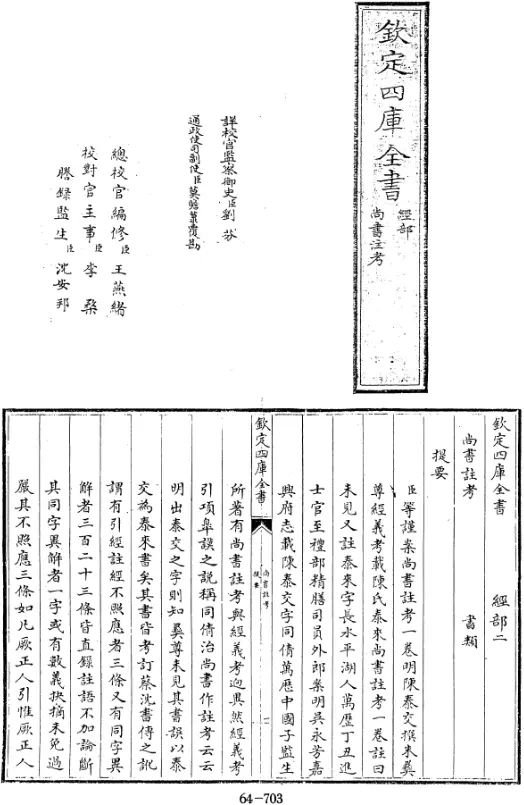 欽定四庫全書
經部
尚書注考
詳校官監察御史臣劉芬
通政使司副使臣莫瞻菉覆勘
總校官編修臣王燕緒
校對官主事臣李棨
謄錄監生臣沈安邦
欽定四庫全書
經部二
尚書註考
書類
提要
臣等謹案尚書註考一卷明陳泰交撰朱彝
尊經義考載陳氏泰來尚書註考一卷註曰
未見又註泰來字長水平湖人萬歷丁丑進
士官至禮部精膳司員外郎案明吳永芳嘉
興府志載陳泰交字同倩萬歷中國子監生
欽定四庫全書
尚書註考
提要
一
所著有尚書註考與經義考迥異然經義考
引項皋謨之說稱同倩治尚書作註考云云
明出泰交之字則知彝尊未見其書誤以泰
交為泰來書矣其書皆考訂蔡沈書傳之訛
謂有引經註經不照應者三條又有同字異
解者三百二十三條皆直錄註語不加論斷
其同字異解者一字或有數義抉摘未免過
嚴其不照應三條如凡厥正人引惟厥正人
64-703